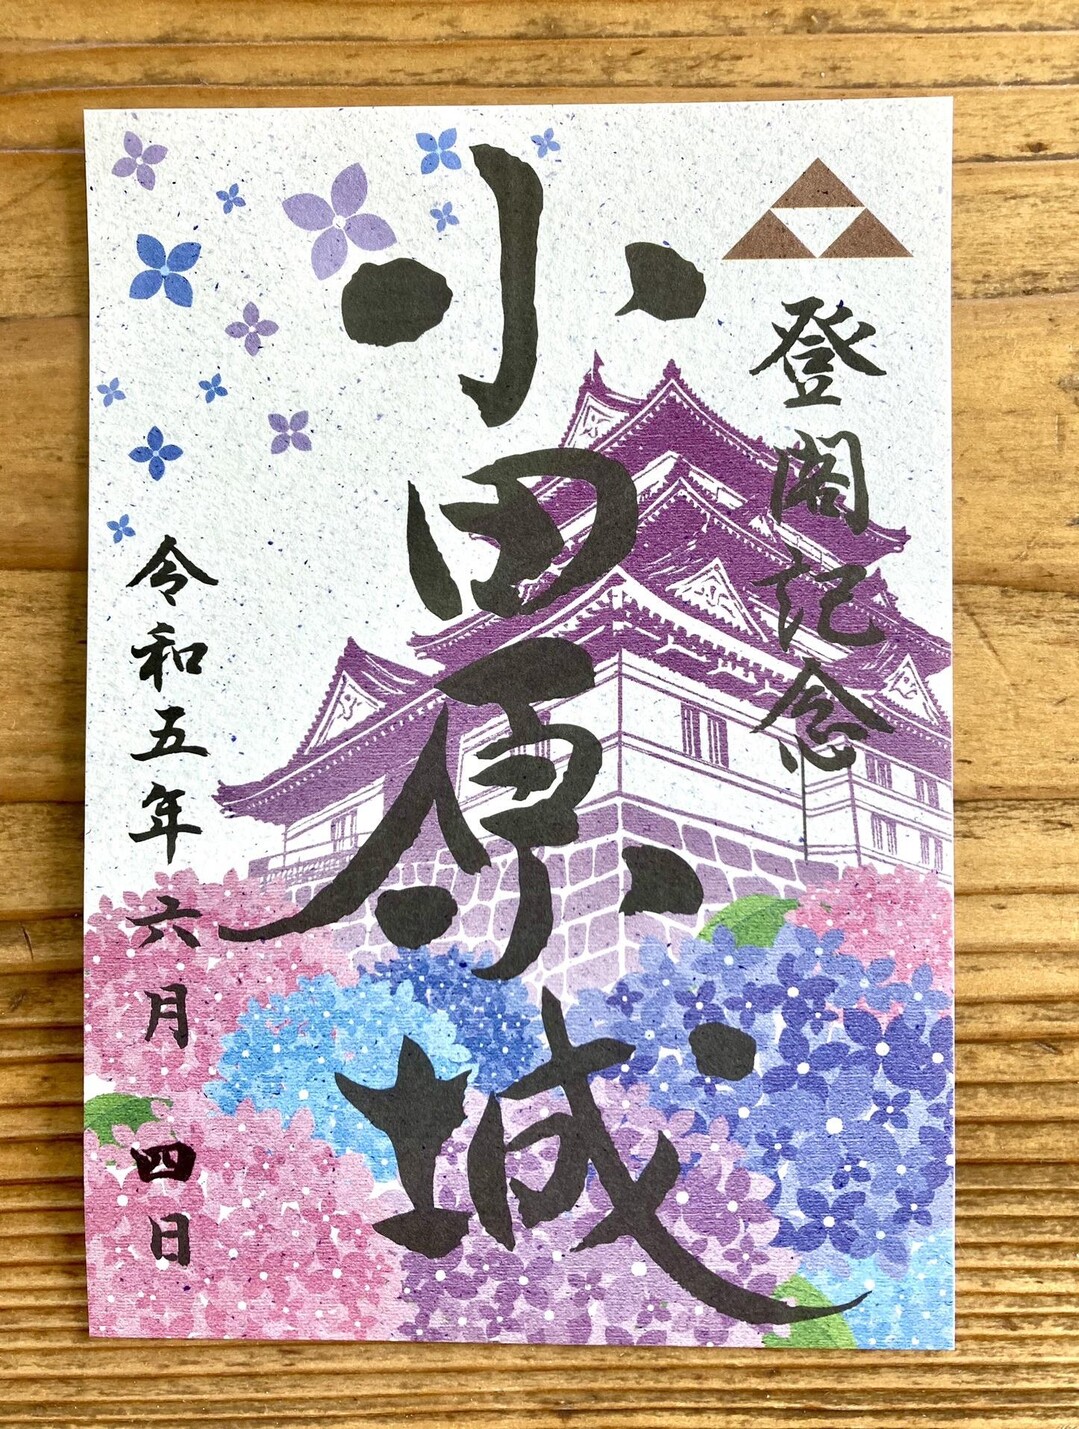 登閣記念
小田原城
令和五年六月四日